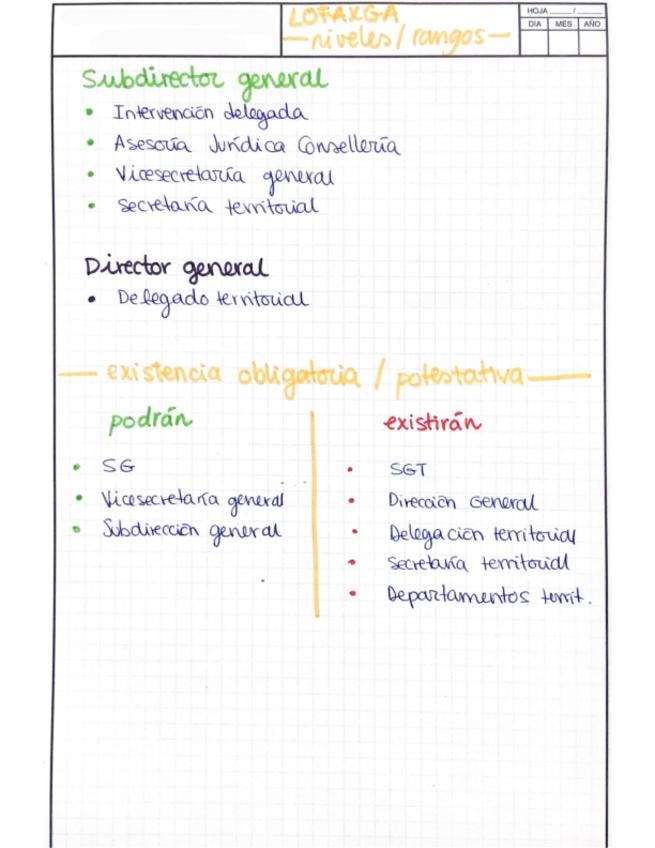 LOFAXGA
— niveles / rangos —
HOJA ____ / ____
DIA MES AÑO
Subdirector general
• Intervención delegada
• Asesoría Jurídica Consellería
• Vicesecretaría general
• Secretaría territorial
Director general
• Delegado territorial
— existencia obligatoria / potestativa —
podrán
• SG
• Vicesecretaría general
• Subdirección general
existirán
• SGT
• Dirección General
• Delegación territorial
• Secretaría territorial
• Departamentos territ.